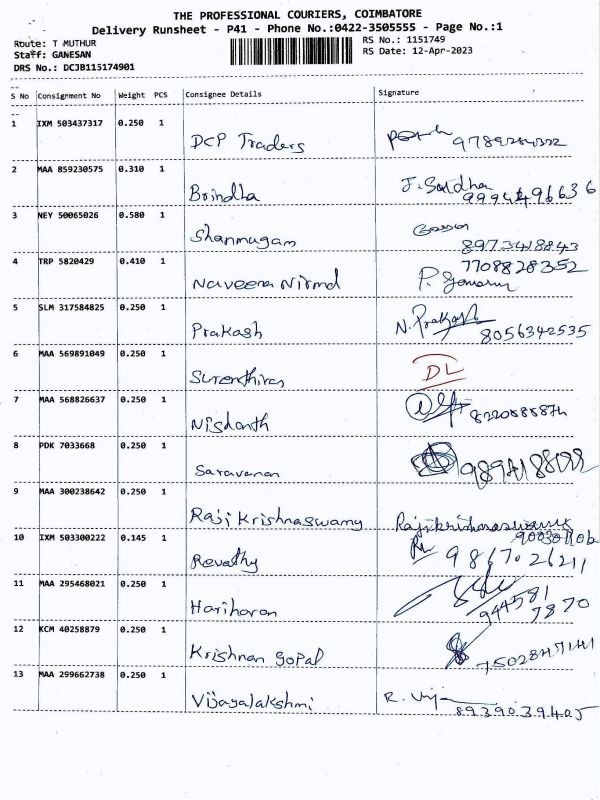 THE PROFESSIONAL COURIERS, COIMBATORE
Delivery Runsheet - P41 - Phone No.:0422-3505555 - Page No.:1
Route: T MUTHUR
Staff: GANESAN
DRS No.: DCJB115174901
RS No.: 1151749
RS Date: 12-Apr-2023
S No Consignment No Weight PCS Consignee Details Signature
1 IXM 503437317 0.250 1
DCP Traders
2 MAA 859230575 0.310 1
Brindha
3 NEY 50065026 0.580 1
Shanmugam 8973418843
4 TRP 5820429 0.410 1 7708828352
Naveena Nirmal
5 SLM 317584825 0.250 1
Prakash N. Prakash 8056342535
6 MAA 569891049 0.250 1
Surenthiran DL
7 MAA 568826637 0.250 1
Nishanth
8 PDK 7033668 0.250 1
Saravanan
9 MAA 300238642 0.250 1
Raji Krishnaswamy Rajikrishnaswamy
10 IXM 503300222 0.145 1
Revathy 9867026211
11 MAA 295468021 0.250 1
Hariharan 944581
7870
12 KCM 40258879 0.250 1
Krishnan Gopal
13 MAA 299662738 0.250 1
Vijayalakshmi 8939039405